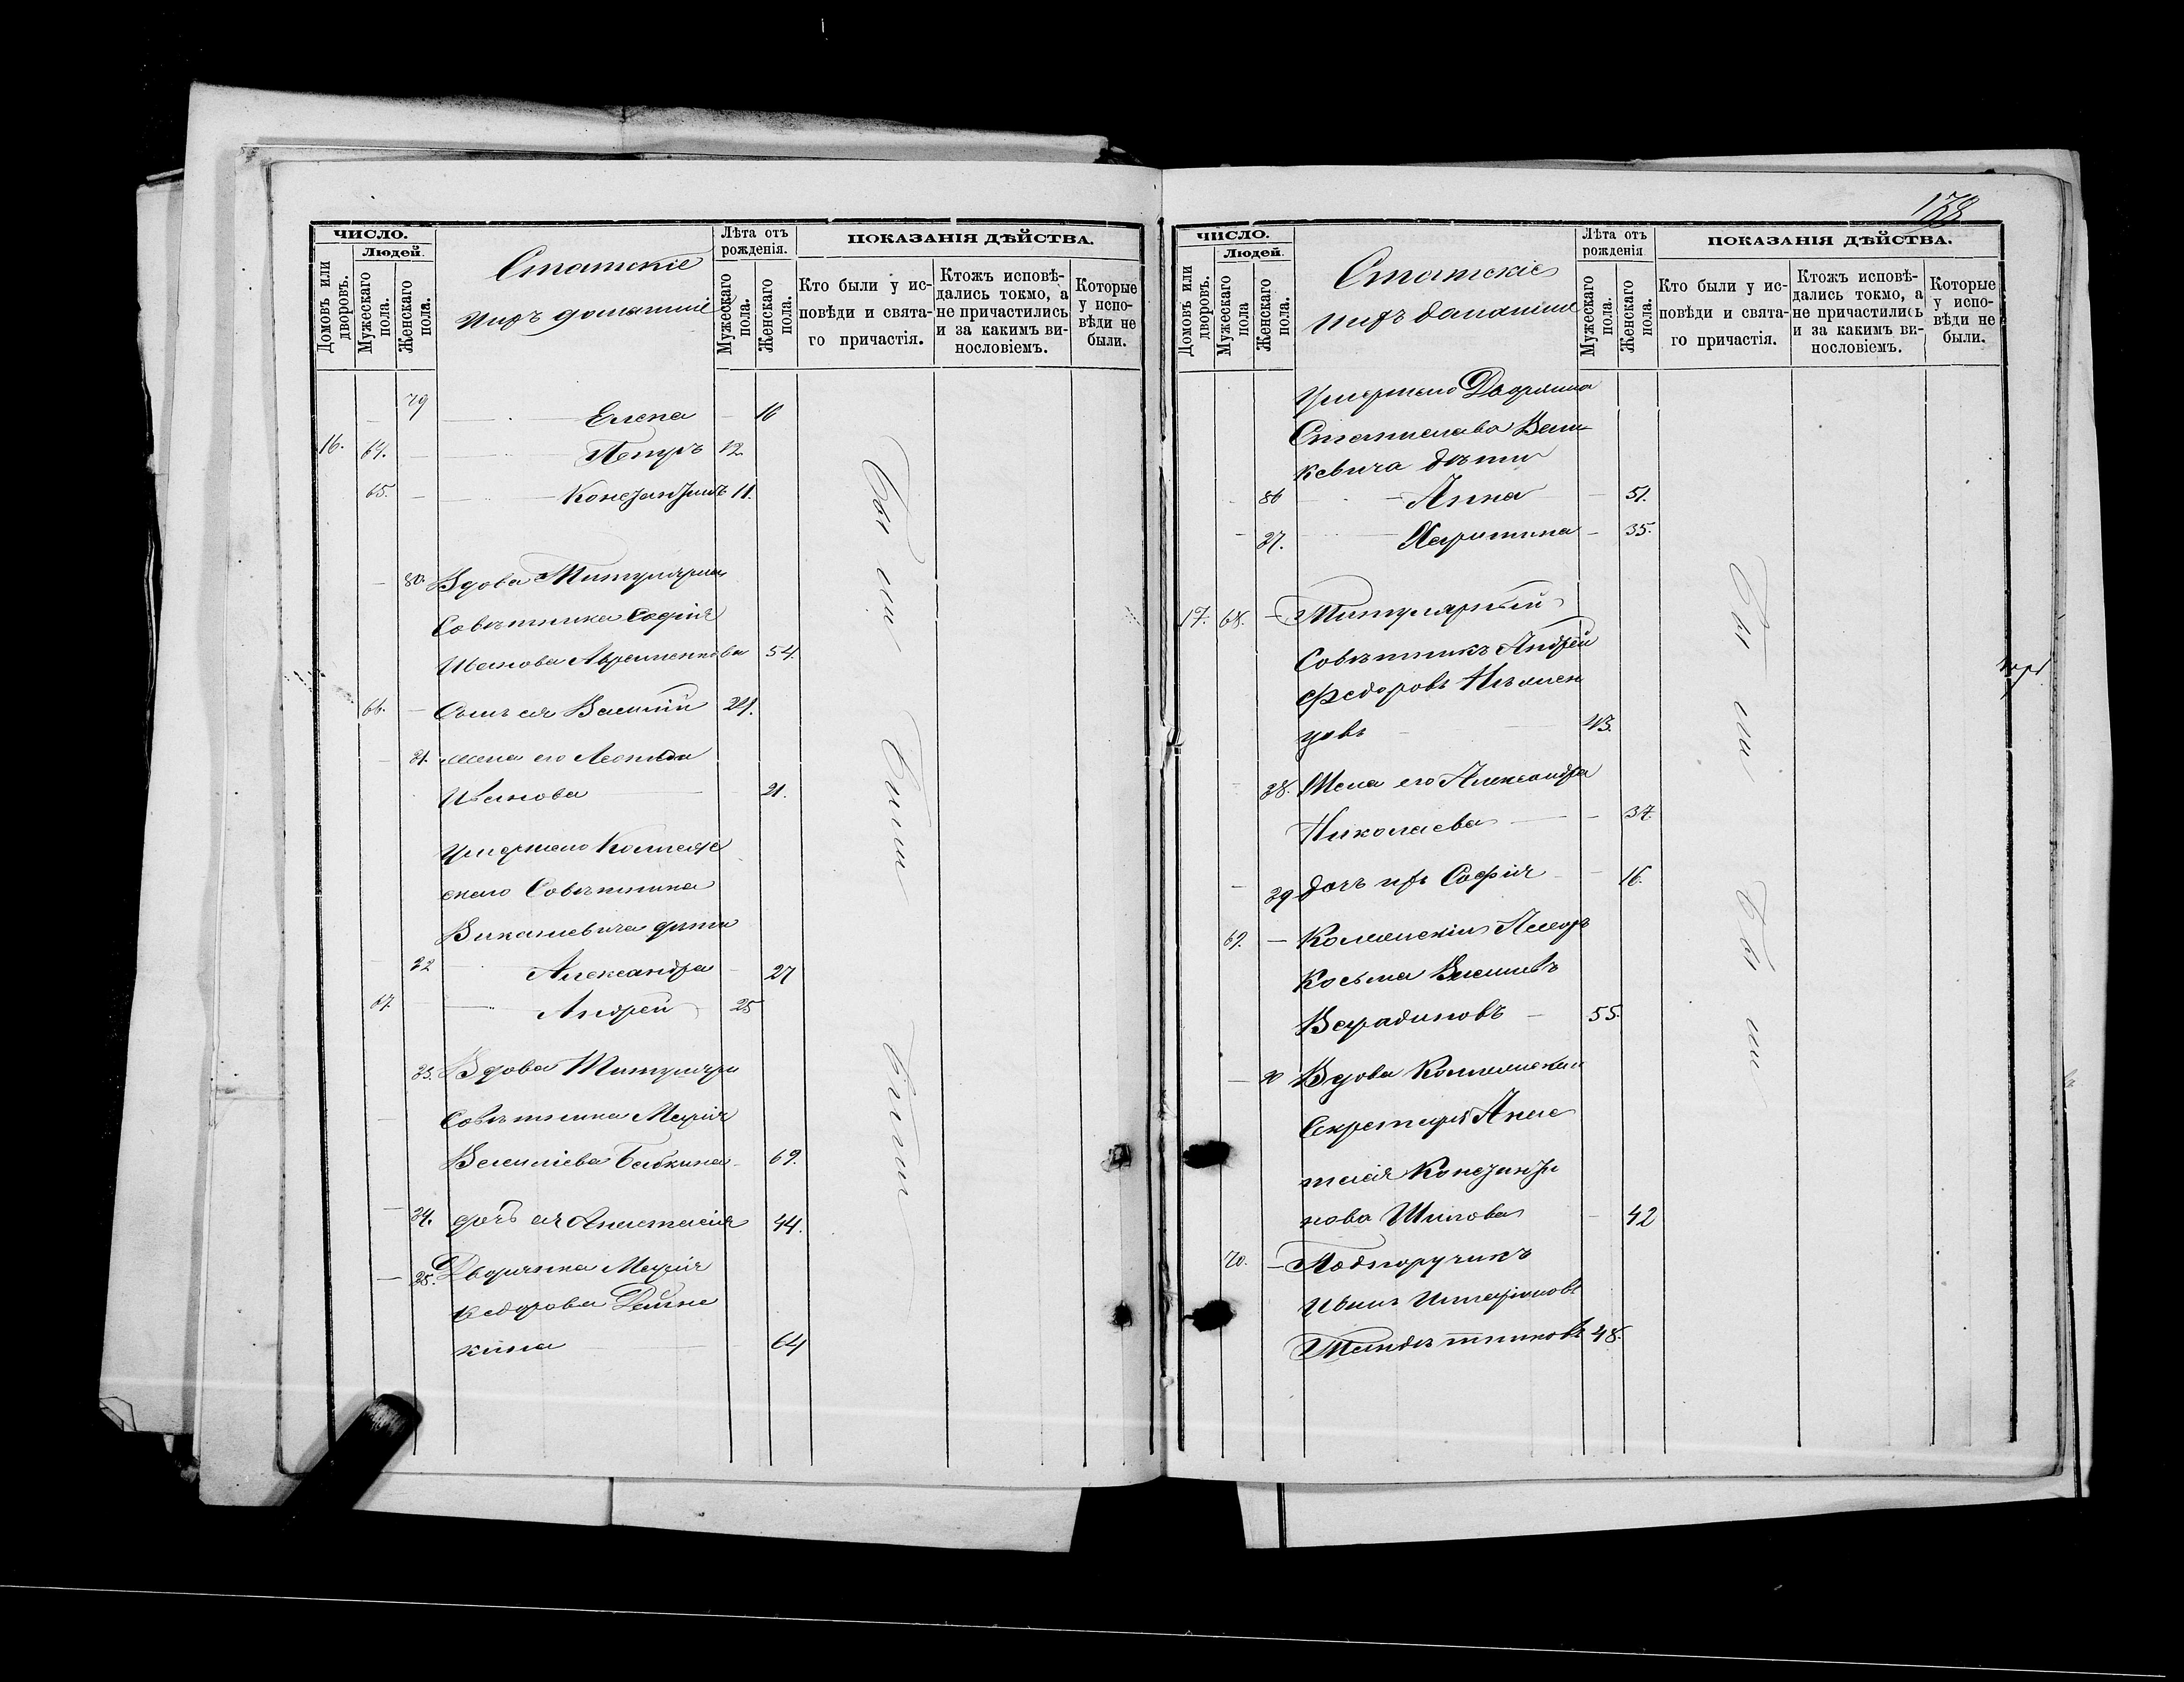 ЧИСЛО.
Людей.
Домовъ или дворовъ.
Мужескаго пола.
Женскаго пола.
Статскіе
ихъ домашніе
Лѣта отъ рожденія.
Мужескаго пола.
Женскаго пола.
ПОКАЗАНІЯ ДѢЙСТВА.
Кто были у исповѣди и святаго причастія.
Ктожъ исповѣдались токмо, а не причастились и за какимъ винословіемъ.
Которые у исповѣди не были.
79 Елена 16
16. 64. Петръ 12
65. Константинъ 11.
80. Вдова Титулярна
Совѣтника Софія
Иванова Авраменкова 54.
66. Сынъ ея Василій 24.
81. жена его Леонида
Иванова 21.
Умершаго Коллеж
скаго Совѣтника
дѣти
82 Александра 27
67. Андрей 25
83. Вдова Титулярн
Совѣтника Марія
Василіева Бабкина 69.
84. дочь ея Анастасія 44.
85. Дворянка Марія
Ѳедорова
кина 64
были были были
178
ЧИСЛО.
Людей.
Домовъ или дворовъ.
Мужескаго пола
Женскаго пола.
Статскіе
ихъ домашніе
Лѣта отъ рожденія
Мужескаго пола.
Женскаго пола.
ПОКАЗАНІЯ ДѢЙСТВА.
Кто были у исповѣди и святаго причастія.
Ктожъ исповѣдались токмо, а не причастились и за какимъ винословіемъ.
Которые у исповѣди не были.
Умершаго Дворянина
Станислава
кевича дѣти
86 Анна 51.
87. Харитина 35.
17. 68. Титулярный
Совѣтникъ Андрей
Федоровъ Нѣмен
цовъ 43.
88. Жена его Александра
Николаева 37.
89 дочь ихъ Софія 16.
69. Коллежскій Асесоръ
Косьма Василіевъ
Варадиновъ 55.
90 Вдова Коллежскаго
Секретаря Анас
тасія Константи
нова Шилова 42
70. Подпоручикъ
Иванъ Илларіоновъ
48.
были были